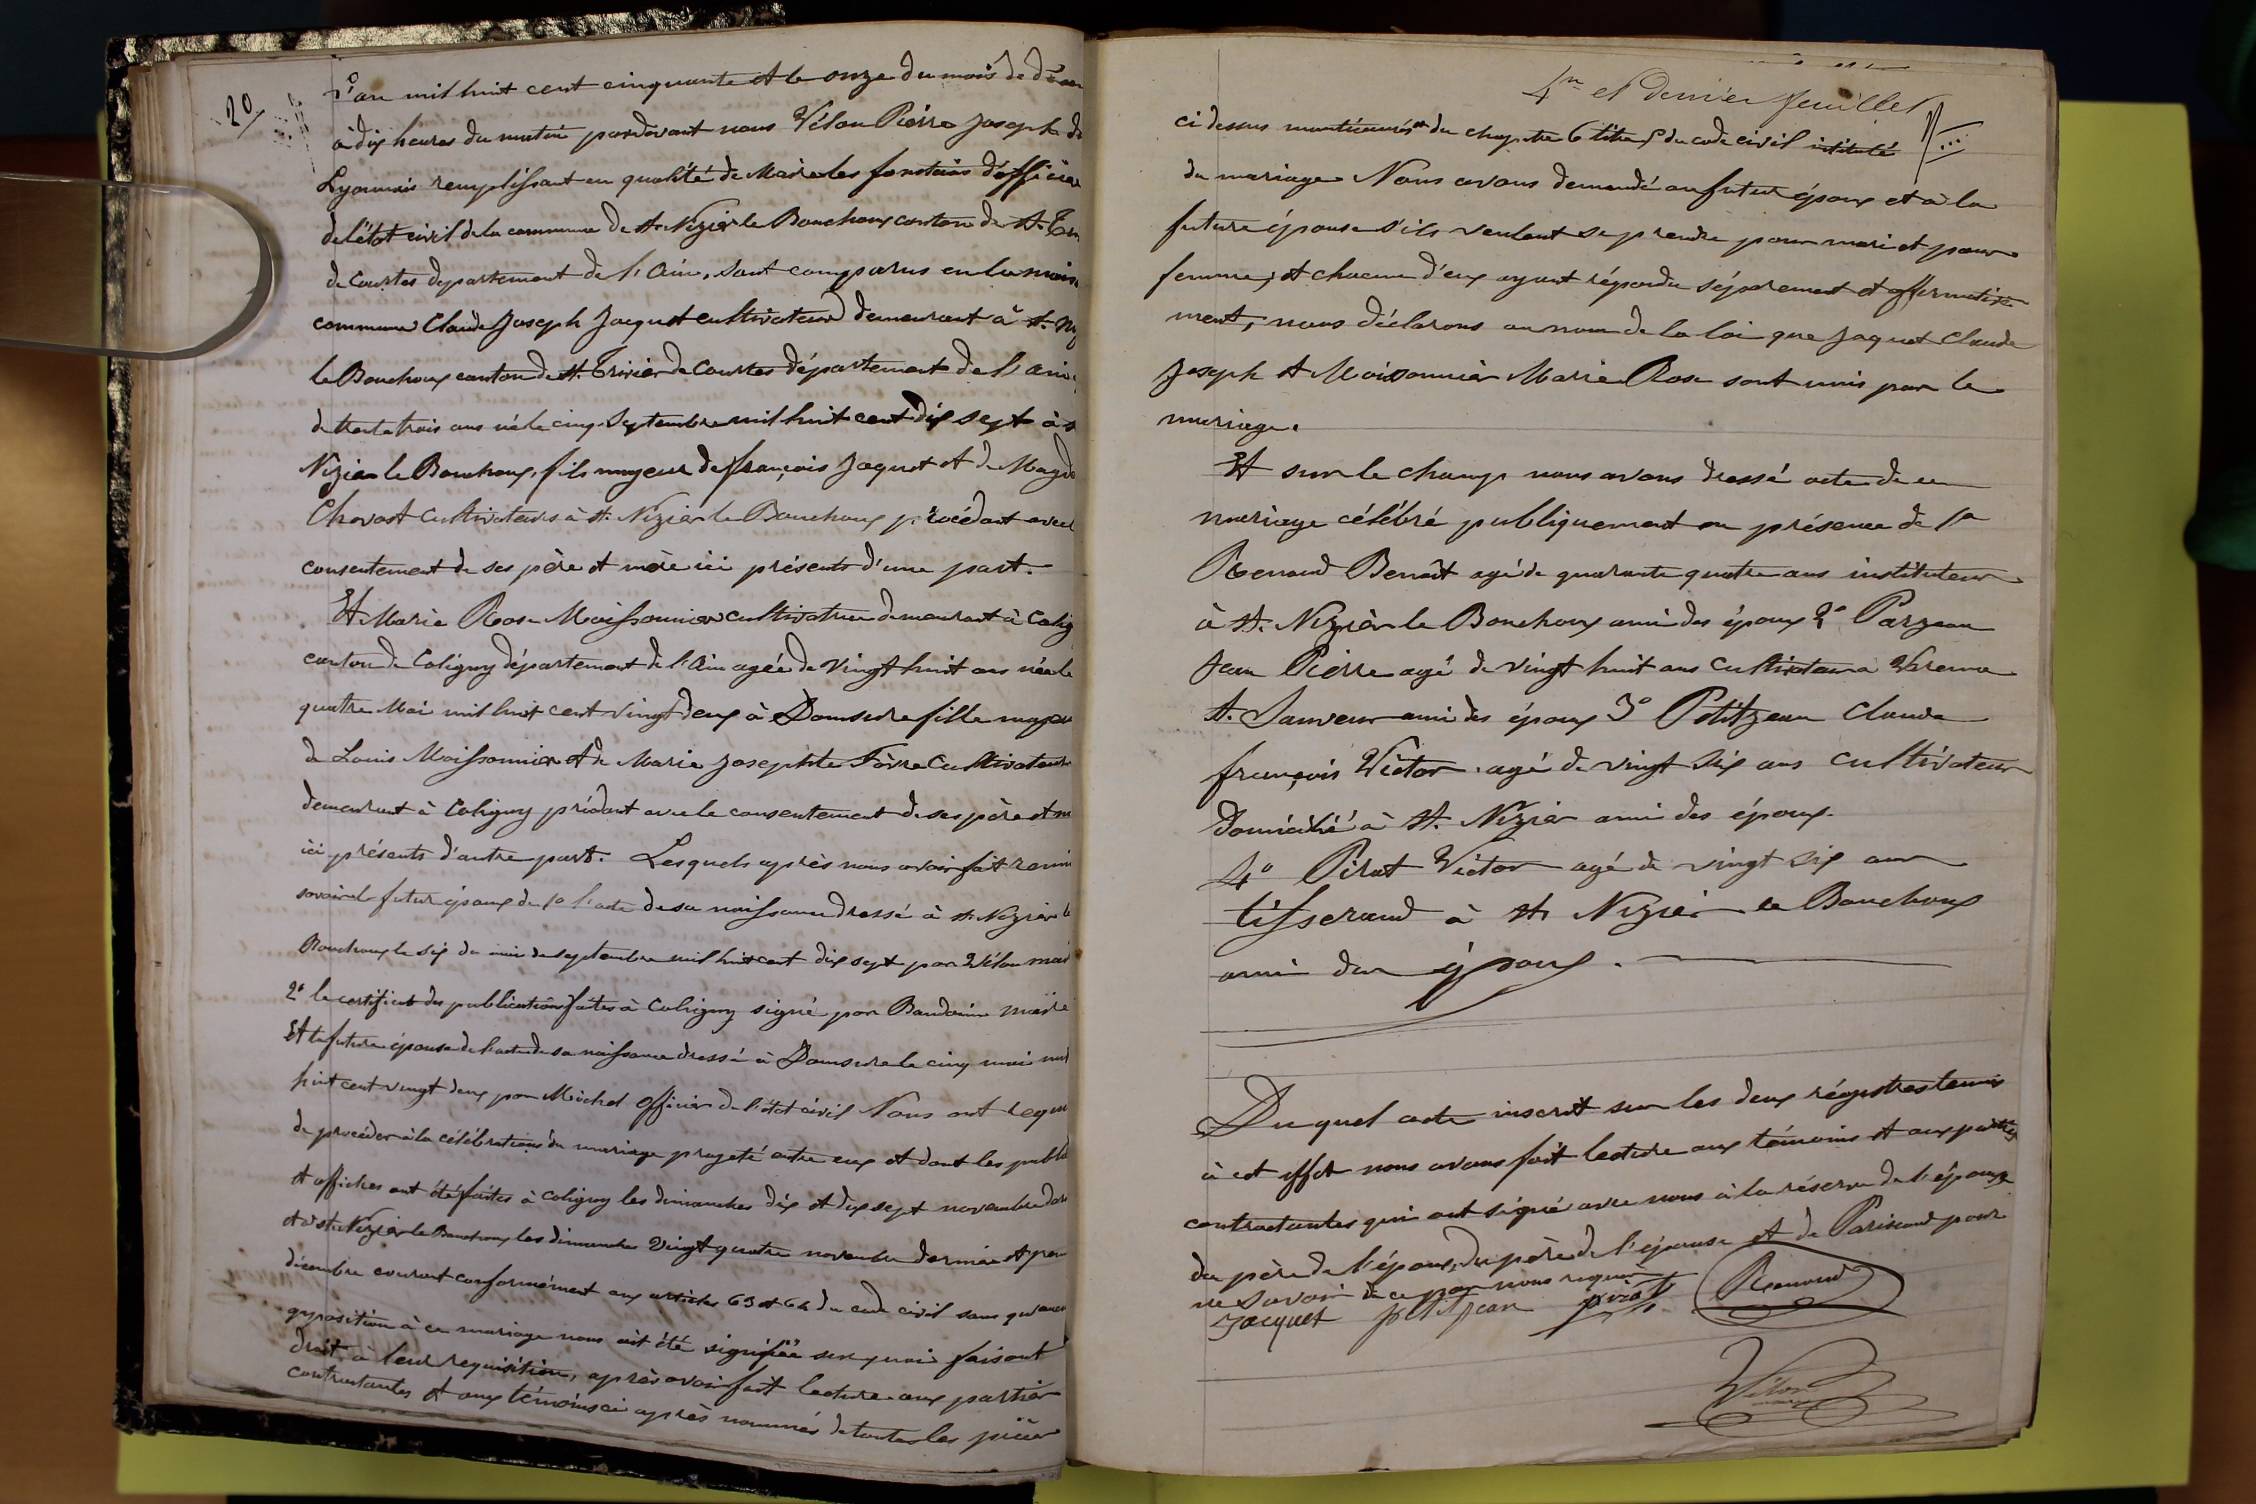 20
L'an mil huit cent cinquante et le onze du mois de décem
à dix heures du matin pardevant nous Vélon Pierre Joseph de
Lyonnais remplissant en qualité de Maire les fonctions d'officier
de l'état civil de la commune de St. Nizier le Bouchoux canton de St. Tri
de Courtes département de l'Ain, sont comparus en la maiso
commune Claude Joseph Jacquet cultivateur demeurant à St. Ni
le Bouchoux canton de St. Trivier de Courtes département de l'Ain
de trente trois ans né le cinq septembre mil huit cent dix sept à s
Nizier le Bouchoux, fils majeur de françois Jaquet et de Magd
Chavast cultivateurs à St. Nizier le Bouchoux procédant avec
consentement de ses père et mère ici présents d'une part.
Et Marie Rose Moissonnier cultivatrice demeurant à Colig
canton de Coligny département de l'Ain agée de vingt huit ans née le
quatre Mai mil huit cent vingt deux à Domsure fille majeu
de Louis Moissonnier et de Marie Josephte Fèvre cultivateurs
demeurant à Coligny prédant avec le consentement de ses père et m
ici présents d'autre part. Lesquels après nous avoir fait remi
savoir le futur époux de 1º l'acte de sa naissance dressé à St. Nizier le
Bouchoux le six du mois de septembre mil huit cent dix sept par Vélon mai
2º le certificat des publications faites à Coligny signé par Baudoin maire
Et la future épouse de l'acte de sa naissance dressé à Domsure le cinq mai mil
huit cent vingt deux par Michel officier de l'état civil Nous ont requi
de procéder à la célébration du mariage projeté entre eux et dont les publi
et affiches ont été faites à Coligny les dimanches dix et dix sept novembre der
et à St. Nizier le Bouchoux les dimanches vingt quatre novembre dernier et prem
décembre courant conformément aux articles 63 et 64 du code civil sans qu'aucu
opposition à ce mariage nous ait été signifiée sur quoi faisant
droit à leur requisition, après avoir fait lecture aux parties
contractantes et aux témoins ci après nommés de toutes les pièces
4me et dernier feuillet
ci dessus mentionnées et du chapitre 6 titre 5 du code civil intitulé
du mariage Nous avons demandé au futur époux et à la
future épouse s'ils veulent se prendre pour mari et pour
femme, et chacun d'eux ayant répondu séparement et affermative
ment, nous déclarons au nom de la loi que Jaquet Claude
Joseph et Moissonnier Marie Rose sont unis par le
mariage.
Et sur le champ nous avons dressé acte de ce
mariage célébré publiquement en présence de 1º
Renoud Benoît agé de quarante quatre ans instituteur
à St. Nizier le Bouchoux ami des époux 2º Parzeau
Jean Pierre agé de vingt huit ans cultivateur à Varenne
St. Sauveur ami des époux 3º Petitjean Claude
françois Victor agé de vingt six ans cultivateur
domicilié à St. Nizier ami des époux.
4º Pirat Victor agé de vingt six ans
tisserand à St. Nizier le Bouchoux
ami des époux.
Du quel acte inscrit sur les deux régistres tenus
à cet effet nous avons fait lecture aux témoins et aux parties
contractantes qui ont signé avec nous à la réserve de l'épouse
du père de l'époux, du père de l'épouse et de Pariseaud pour
ne savoir de ce par nous requis
Jacquet petitjean pirat Renoud
Vélon
maire